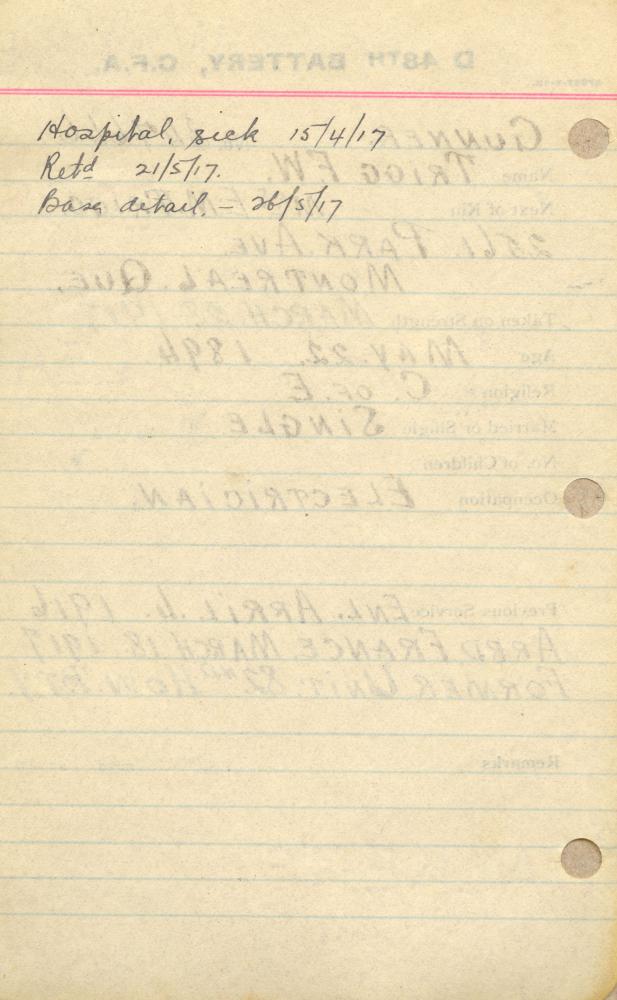 Hospital, sick 15/4/17
Retd 21/5/17.
Base detail. – 26/5/17
D 48TH BATTERY, C.F.A.
GUNNER
Name TRIGG F.W.
Next of Kin
2561. PARK. AVE.
MONTREAL. QUE.
Taken on Strength MARCH. 1917
Age MAY. 22. 1894
Religion C. OF. E
Married or Single SINGLE
No. of Children
Occupation ELECTRICIAN.
Previous Service ENL. APRIL. 6. 1916
ARRD FRANCE. MARCH 18. 1917
FORMER UNIT. 82ND HOW. BTY.
Remarks